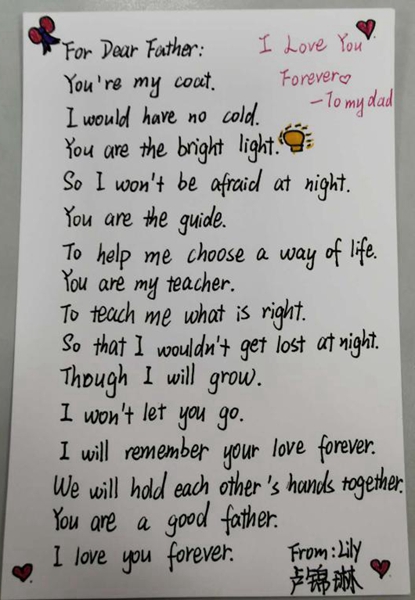 For Dear Father:
I Love You
Forever
—To my dad
You're my coat.
I would have no cold.
You are the bright light.
So I won't be afraid at night.
You are the guide.
To help me choose a way of life.
You are my teacher.
To teach me what is right.
So that I wouldn't get lost at night.
Though I will grow.
I won't let you go.
I will remember your love forever.
We will hold each other's hands together.
You are a good father.
I love you forever.
From: Lily
卢锦琳